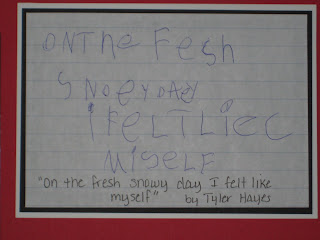 ONTHe Fesh
SNOeyDAy
iFeLTLiec
MiSELF
"On the fresh snowy day I felt like
myself" by Tyler Hayes